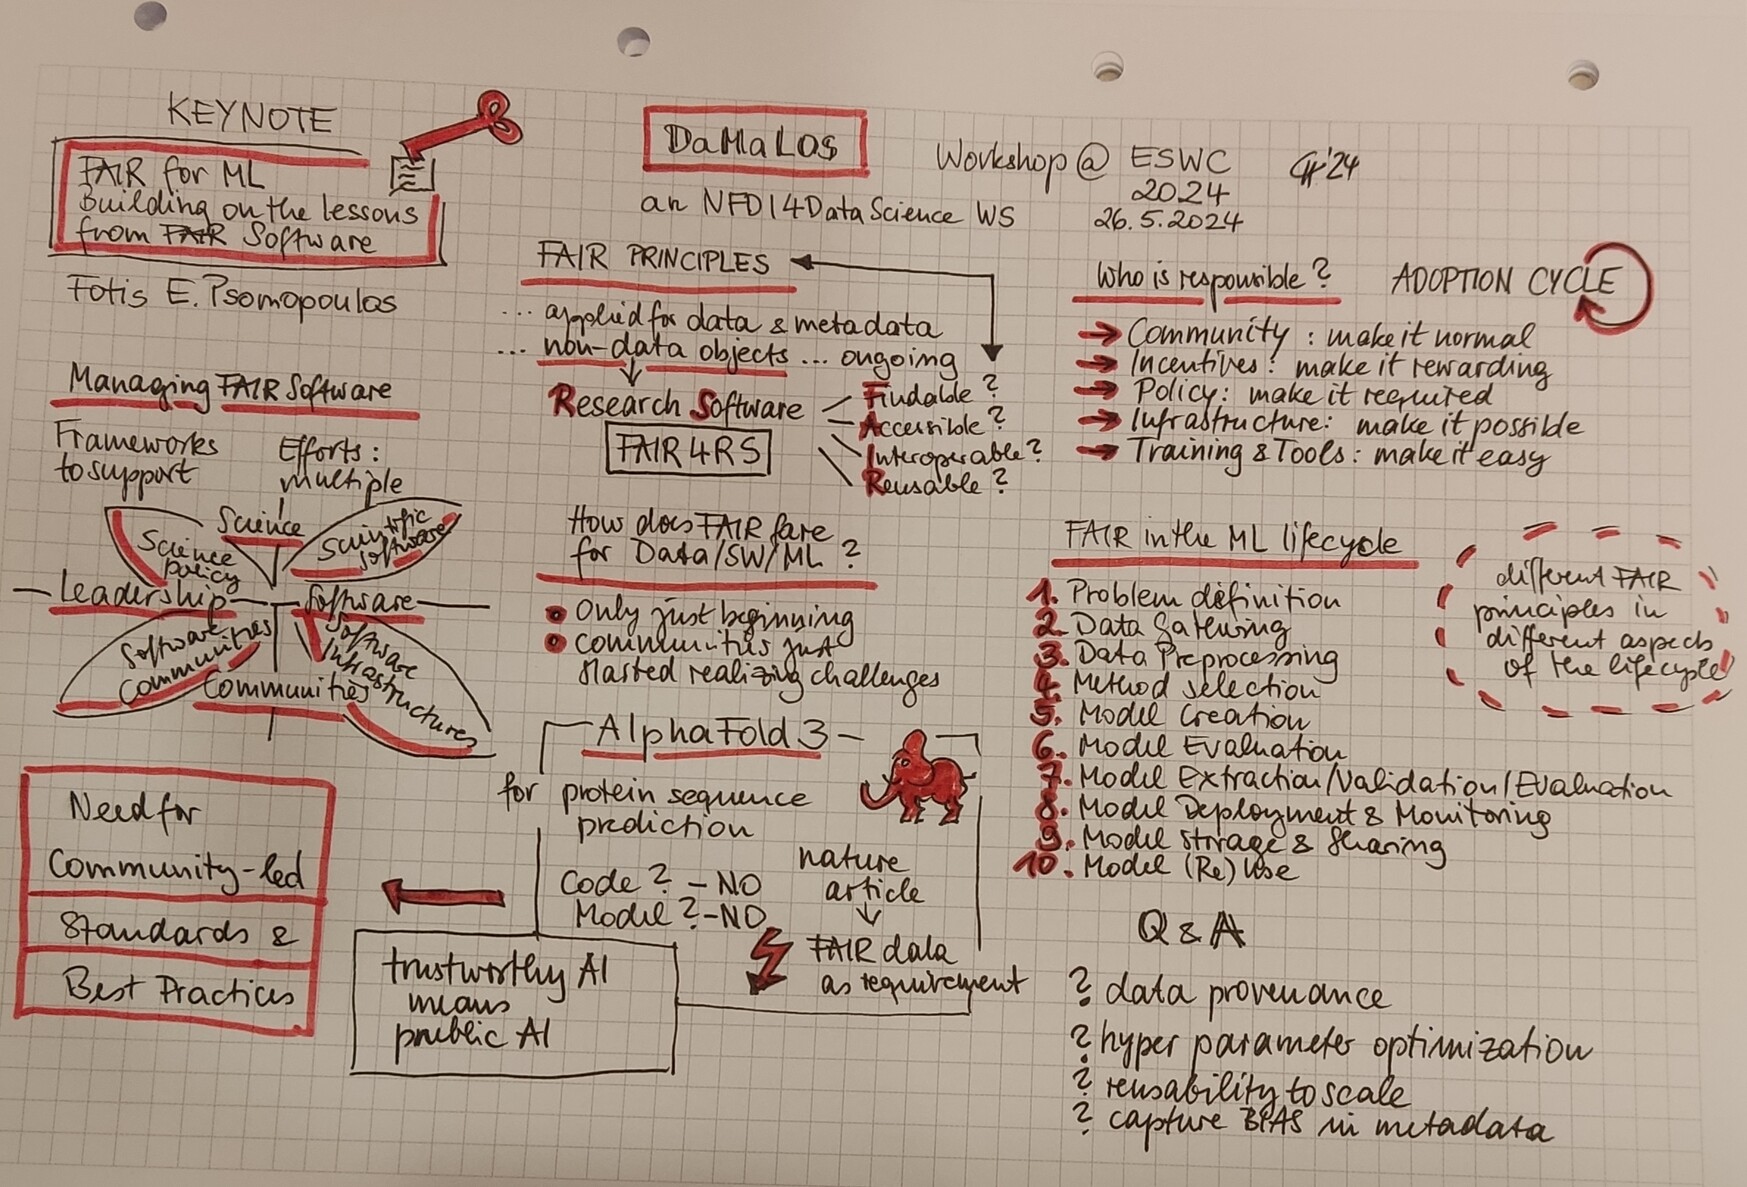 KEYNOTE
FAIR for ML
Building on the lessons
from FAIR Software
Fotis E. Psomopoulos
DaMaLOs
an NFDI4DataScience WS
Workshop @ ESWC
2024
26.5.2024
'24
Managing FAIR Software
Frameworks
to support
Efforts:
multiple
Science
Science
policy
Scientific
Software
Leadership
Software
Software
Communities
Communities
Software
Infrastructures
Need for
Community-led
Standards &
Best Practices
FAIR PRINCIPLES
... applied for data & metadata
... non-data objects ... ongoing
Research Software
FAIR4RS
Findable?
Accessible?
Interoperable?
Reusable?
How does FAIR fare
for Data/SW/ML?
Only just beginning
communities just
started realizing challenges
AlphaFold 3
for protein sequence
prediction
Code? - NO
Model? - NO
nature
article
FAIR data
as requirement
trustworthy AI
means
public AI
Who is responsible?
ADOPTION CYCLE
Community: make it normal
Incentives: make it rewarding
Policy: make it required
Infrastructure: make it possible
Training & Tools: make it easy
FAIR in the ML lifecycle
1. Problem definition
2. Data Gathering
3. Data Preprocessing
4. Method selection
5. Model Creation
6. Model Evaluation
7. Model Extraction/Validation/Evaluation
8. Model Deployment & Monitoring
9. Model Storage & Sharing
10. Model (Re)Use
different FAIR
principles in
different aspects
of the lifecycle!
Q & A
? data provenance
? hyper parameter optimization
? reusability to scale
? capture BIAS in metadata